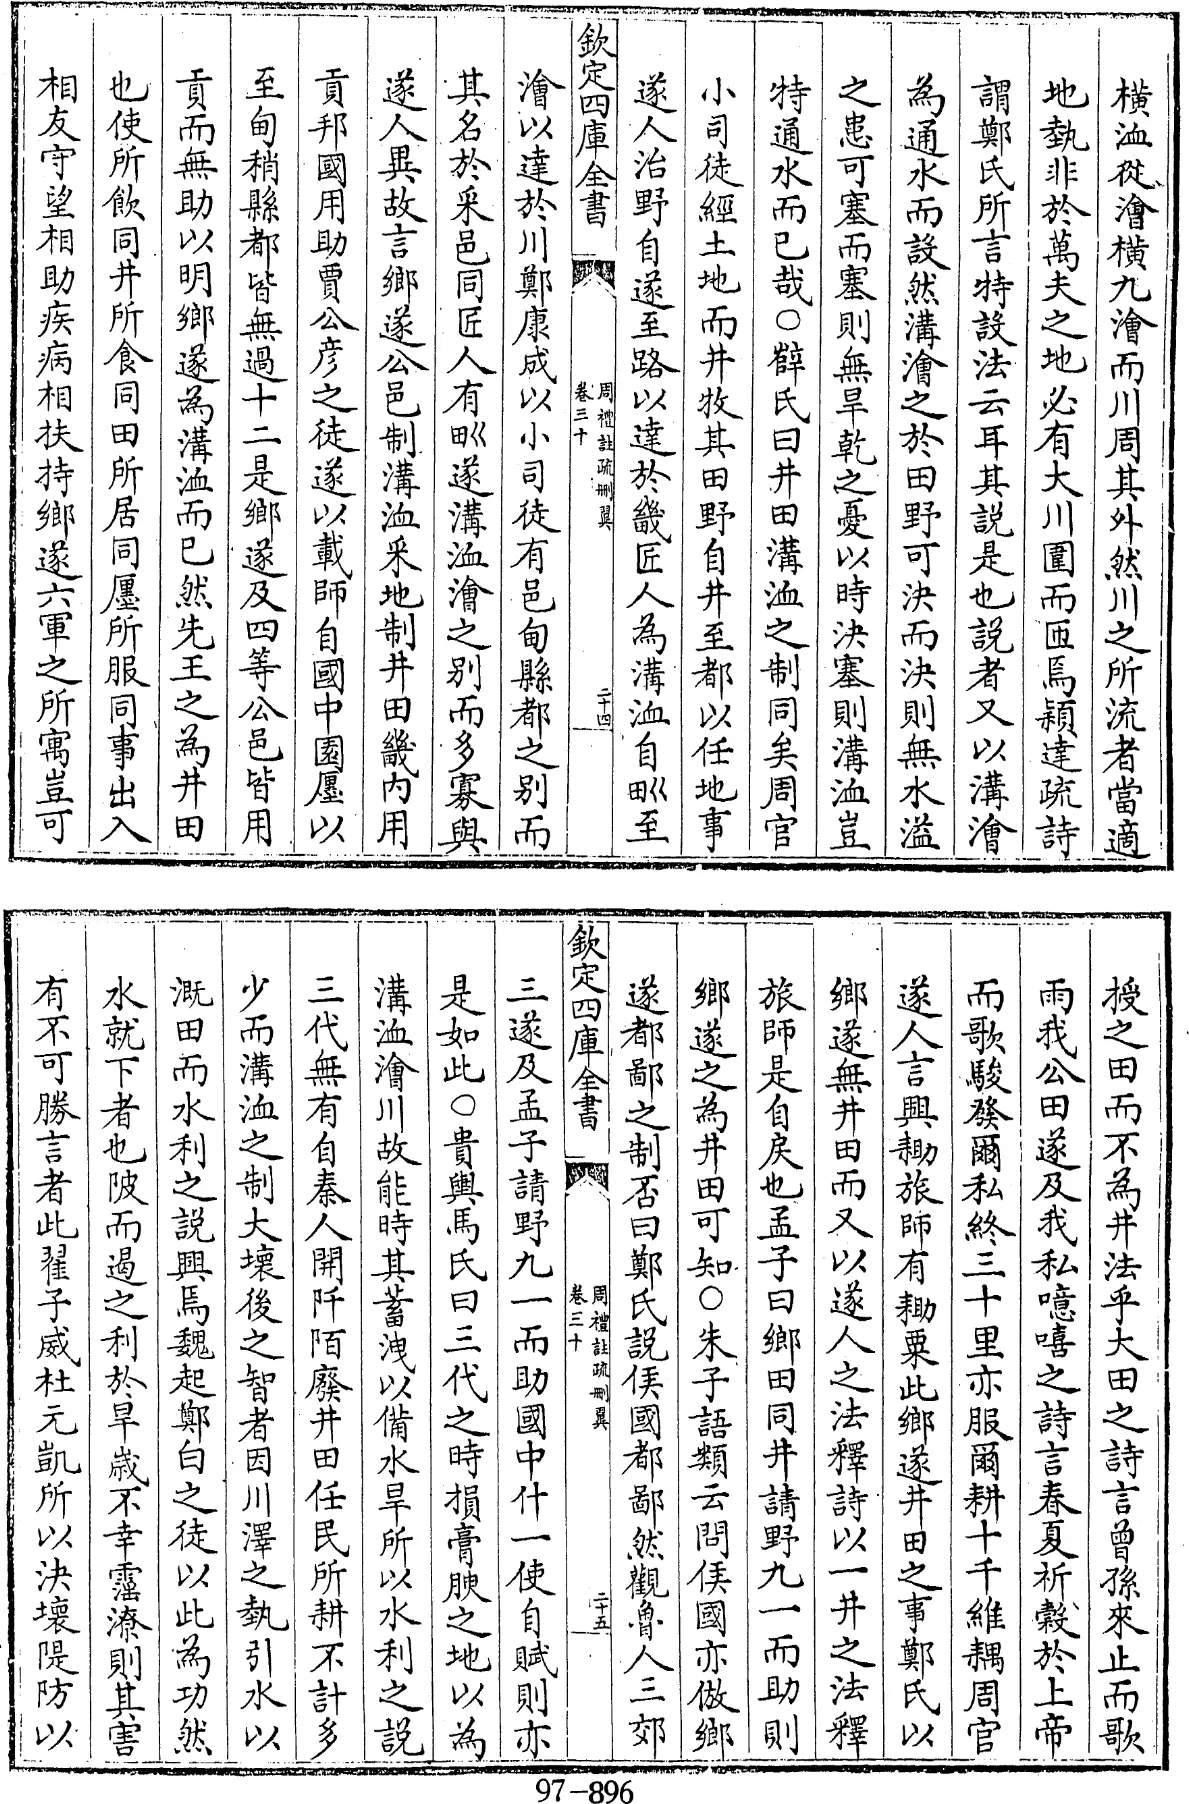 橫洫從澮橫九澮而川周其外然川之所流者當適
地執非於萬夫之地必有大川圍而匝焉穎達疏詩
謂鄭氏所言特設法云耳其説是也説者又以溝澮
為通水而設然溝澮之於田野可決而決則無水溢
之患可塞而塞則無旱乾之憂以時決塞則溝洫豈
特通水而已哉○辥氏曰井田溝洫之制同矣周官
小司徒經土地而井牧其田野自井至都以任地事
遂人治野自遂至路以達於畿匠人為溝洫自𤰕至
欽定四庫全書
周禮註疏刪翼
卷三十
二十四
澮以達於川鄭康成以小司徒有邑甸縣都之别而
其名於采邑同匠人有𤰕遂溝洫澮之别而多寡與
遂人異故言鄉遂公邑制溝洫采地制井田畿内用
貢邦國用助賈公彦之徒遂以載師自國中園廛以
至甸稍縣都皆無過十二是鄉遂及四等公邑皆用
貢而無助以明鄉遂為溝洫而已然先王之為井田
也使所飲同井所食同田所居同廛所服同事出入
相友守望相助疾病相扶持鄉遂六軍之所寓豈可
授之田而不為井法乎大田之詩言曾孫來止而歌
雨我公田遂及我私噫嘻之詩言春夏祈穀於上帝
而歌駿發爾私終三十里亦服爾耕十千維耦周官
遂人言興耡旅師有耡粟此鄉遂井田之事鄭氏以
鄉遂無井田而又以遂人之法釋詩以一井之法釋
旅師是自戾也孟子曰鄉田同井請野九一而助則
鄉遂之為井田可知○朱子語類云問侯國亦倣鄉
遂都鄙之制否曰鄭氏説侯國都鄙然觀魯人三郊
欽定四庫全書
周禮註疏刪翼
卷三十
二十五
三遂及孟子請野九一而助國中什一使自賦則亦
是如此○貴與馬氏曰三代之時損膏腴之地以為
溝洫澮川故能時其蓄洩以備水旱所以水利之説
三代無有自秦人開阡陌廢井田任民所耕不計多
少而溝洫之制大壞後之智者因川澤之執引水以
溉田而水利之説興焉魏起鄭白之徒以此為功然
水就下者也陂而遏之利於旱歲不幸霪潦則其害
有不可勝言者此翟子威杜元凱所以決壞隄防以
97-896